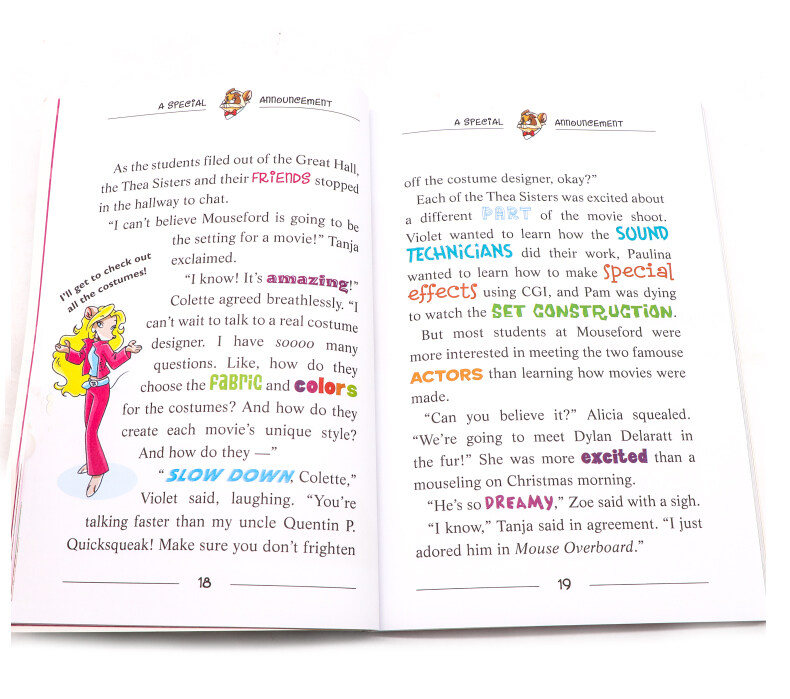 A SPECIAL ANNOUNCEMENT
As the students filed out of the Great Hall,
the Thea Sisters and their FRIENDS stopped
in the hallway to chat.
“I can’t believe Mouseford is going to be
the setting for a movie!” Tanja
exclaimed.
“I know! It’s amazing!”
Colette agreed breathlessly. “I
can’t wait to talk to a real costume
designer. I have soooo many
questions. Like, how do they
choose the FABRIC and colors
for the costumes? And how do they
create each movie’s unique style?
And how do they —”
“SLOW DOWN, Colette,”
Violet said, laughing. “You’re
talking faster than my uncle Quentin P.
Quicksqueak! Make sure you don’t frighten
I’ll get to check out
all the costumes!
18
A SPECIAL ANNOUNCEMENT
off the costume designer, okay?”
Each of the Thea Sisters was excited about
a different PART of the movie shoot.
Violet wanted to learn how the SOUND
TECHNICIANS did their work, Paulina
wanted to learn how to make special
effects using CGI, and Pam was dying
to watch the SET CONSTRUCTION.
But most students at Mouseford were
more interested in meeting the two famouse
ACTORS than learning how movies were
made.
“Can you believe it?” Alicia squealed.
“We’re going to meet Dylan Delaratt in
the fur!” She was more excited than a
mouseling on Christmas morning.
“He’s so DREAMY,” Zoe said with a sigh.
“I know,” Tanja said in agreement. “I just
adored him in Mouse Overboard.”
19